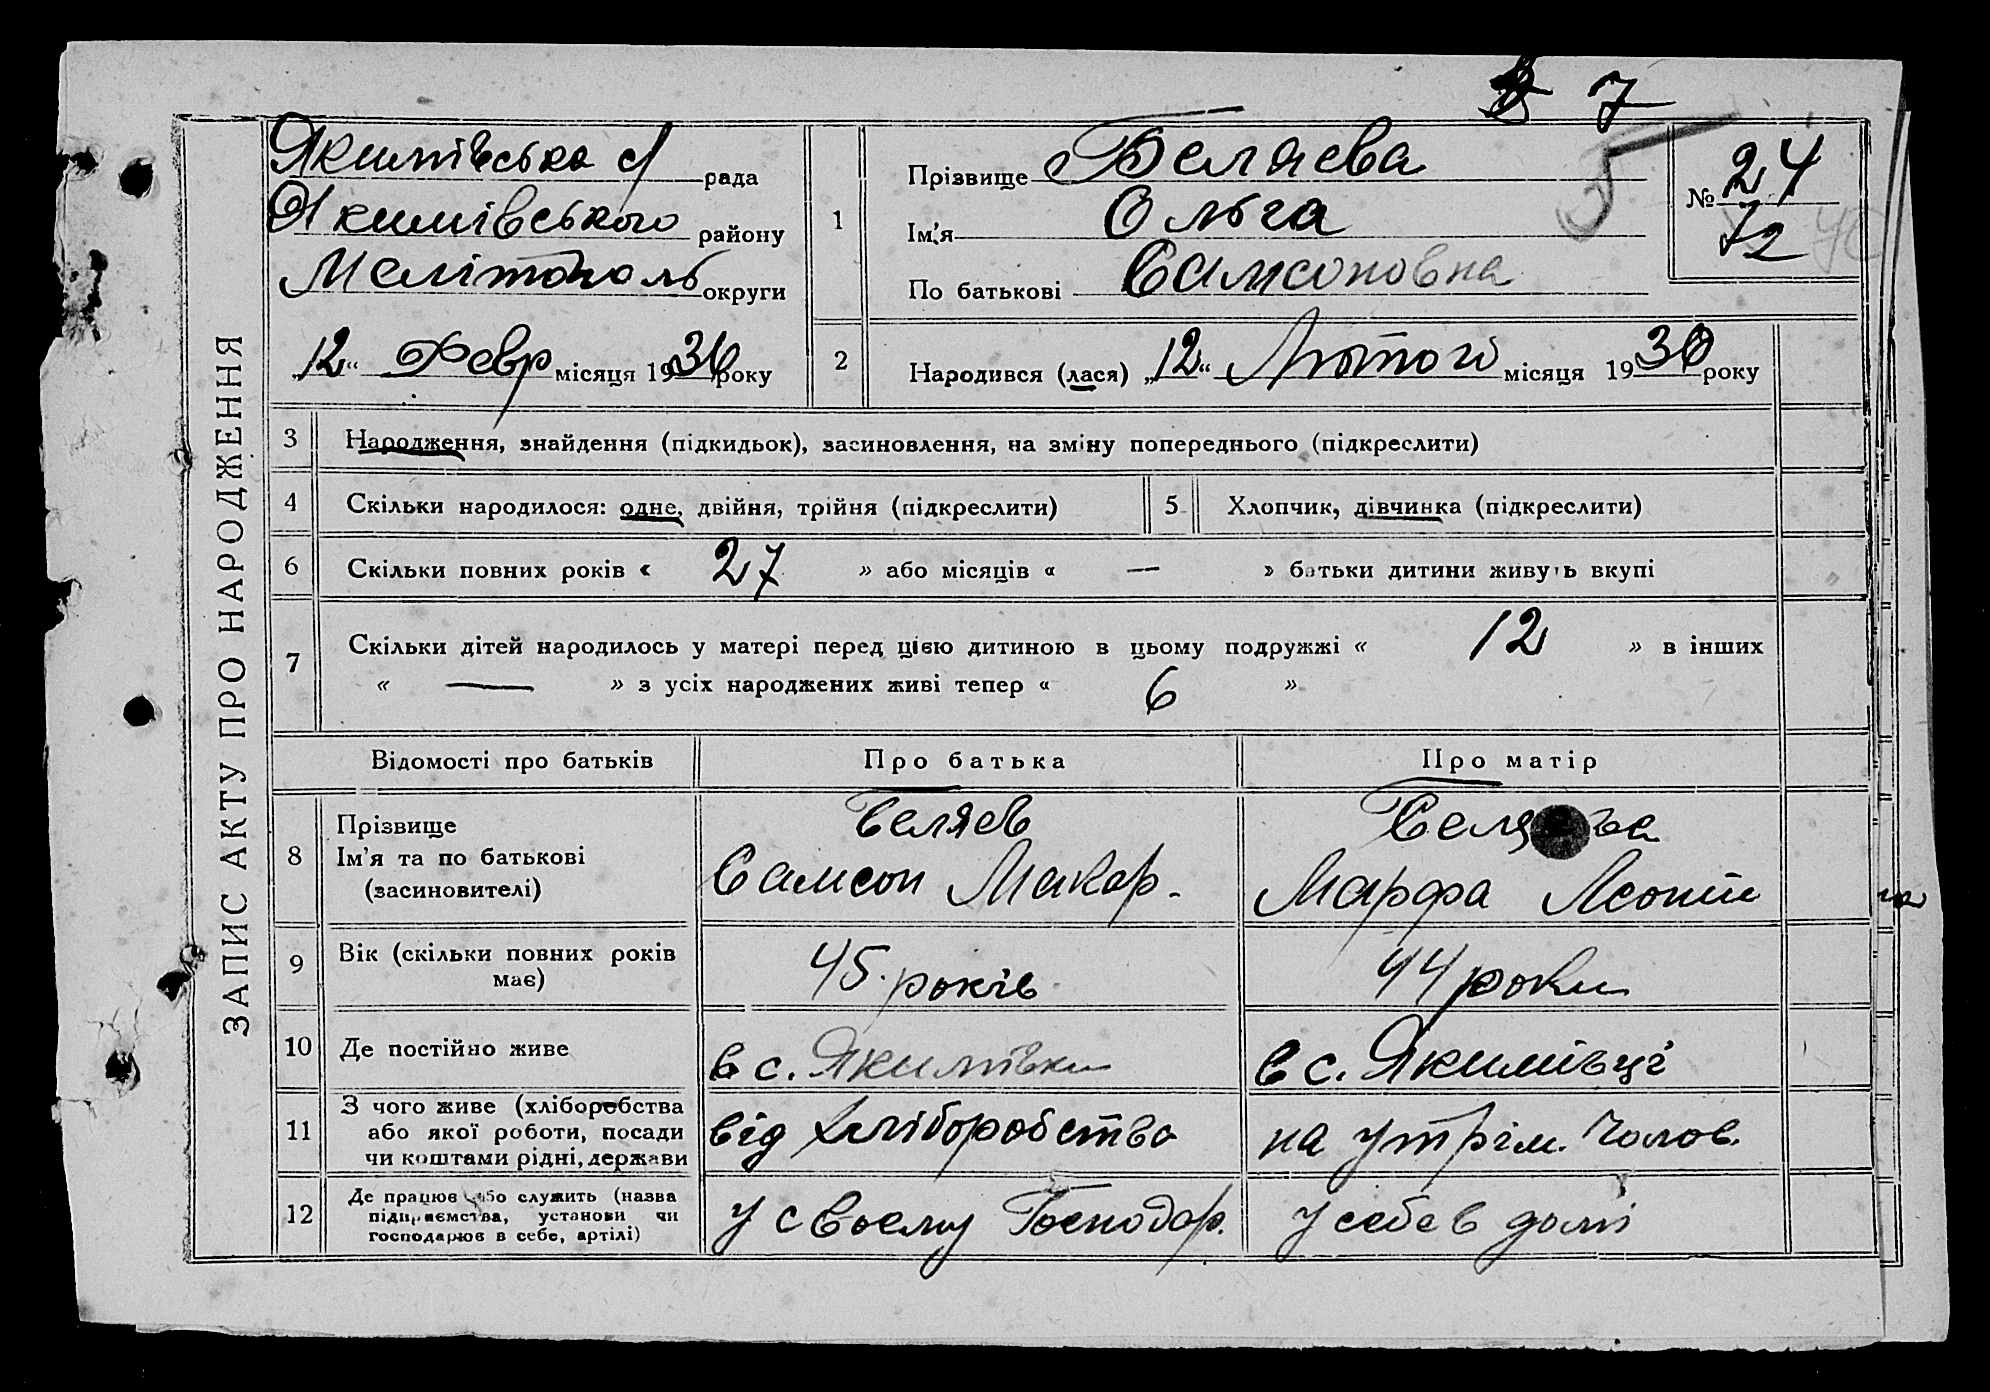 7
ЗАПИС АКТУ ПРО НАРОДЖЕННЯ
Якимівська с/ рада
Якимівського району
Мелітополь округи
„12“ Февр місяця 1930 року
1
Прізвище Беляева
Ім'я Ольга
По батькові Самсоновна
5
№ 24
72
2
Народився (лася) „12“ Лютого місяця 1930 року
3 Народження, знайдення (підкидьок), засиновлення, на зміну попереднього (підкреслити)
4 Скільки народилося: одне, двійня, трійня (підкреслити)
5 Хлопчик, дівчинка (підкреслити)
6 Скільки повних років « 27 » або місяців « — » батьки дитини живуть вкупі
7 Скільки дітей народилось у матері перед цією дитиною в цьому подружжі « 12 » в інших
« — » з усіх народжених живі тепер « 6 »
Відомості про батьків
Про батька
Про матір
8 Прізвище
Ім'я та по батькові
(засиновителі)
Беляев
Самсон Макар.
Беляева
Марфа
9 Вік (скільки повних років
має)
45 років
44 роки
10 Де постійно живе
в с. Якимівки
в с. Якимівці
11 З чого живе (хліборобства
або якої роботи, посади
чи коштами рідні, держави
від хліборобства
на утрім. чолов.
12 Де працює або служить (назва
підприємства, установи чи
господарює в себе, артілі)
у своему Господар.
у себе в домі